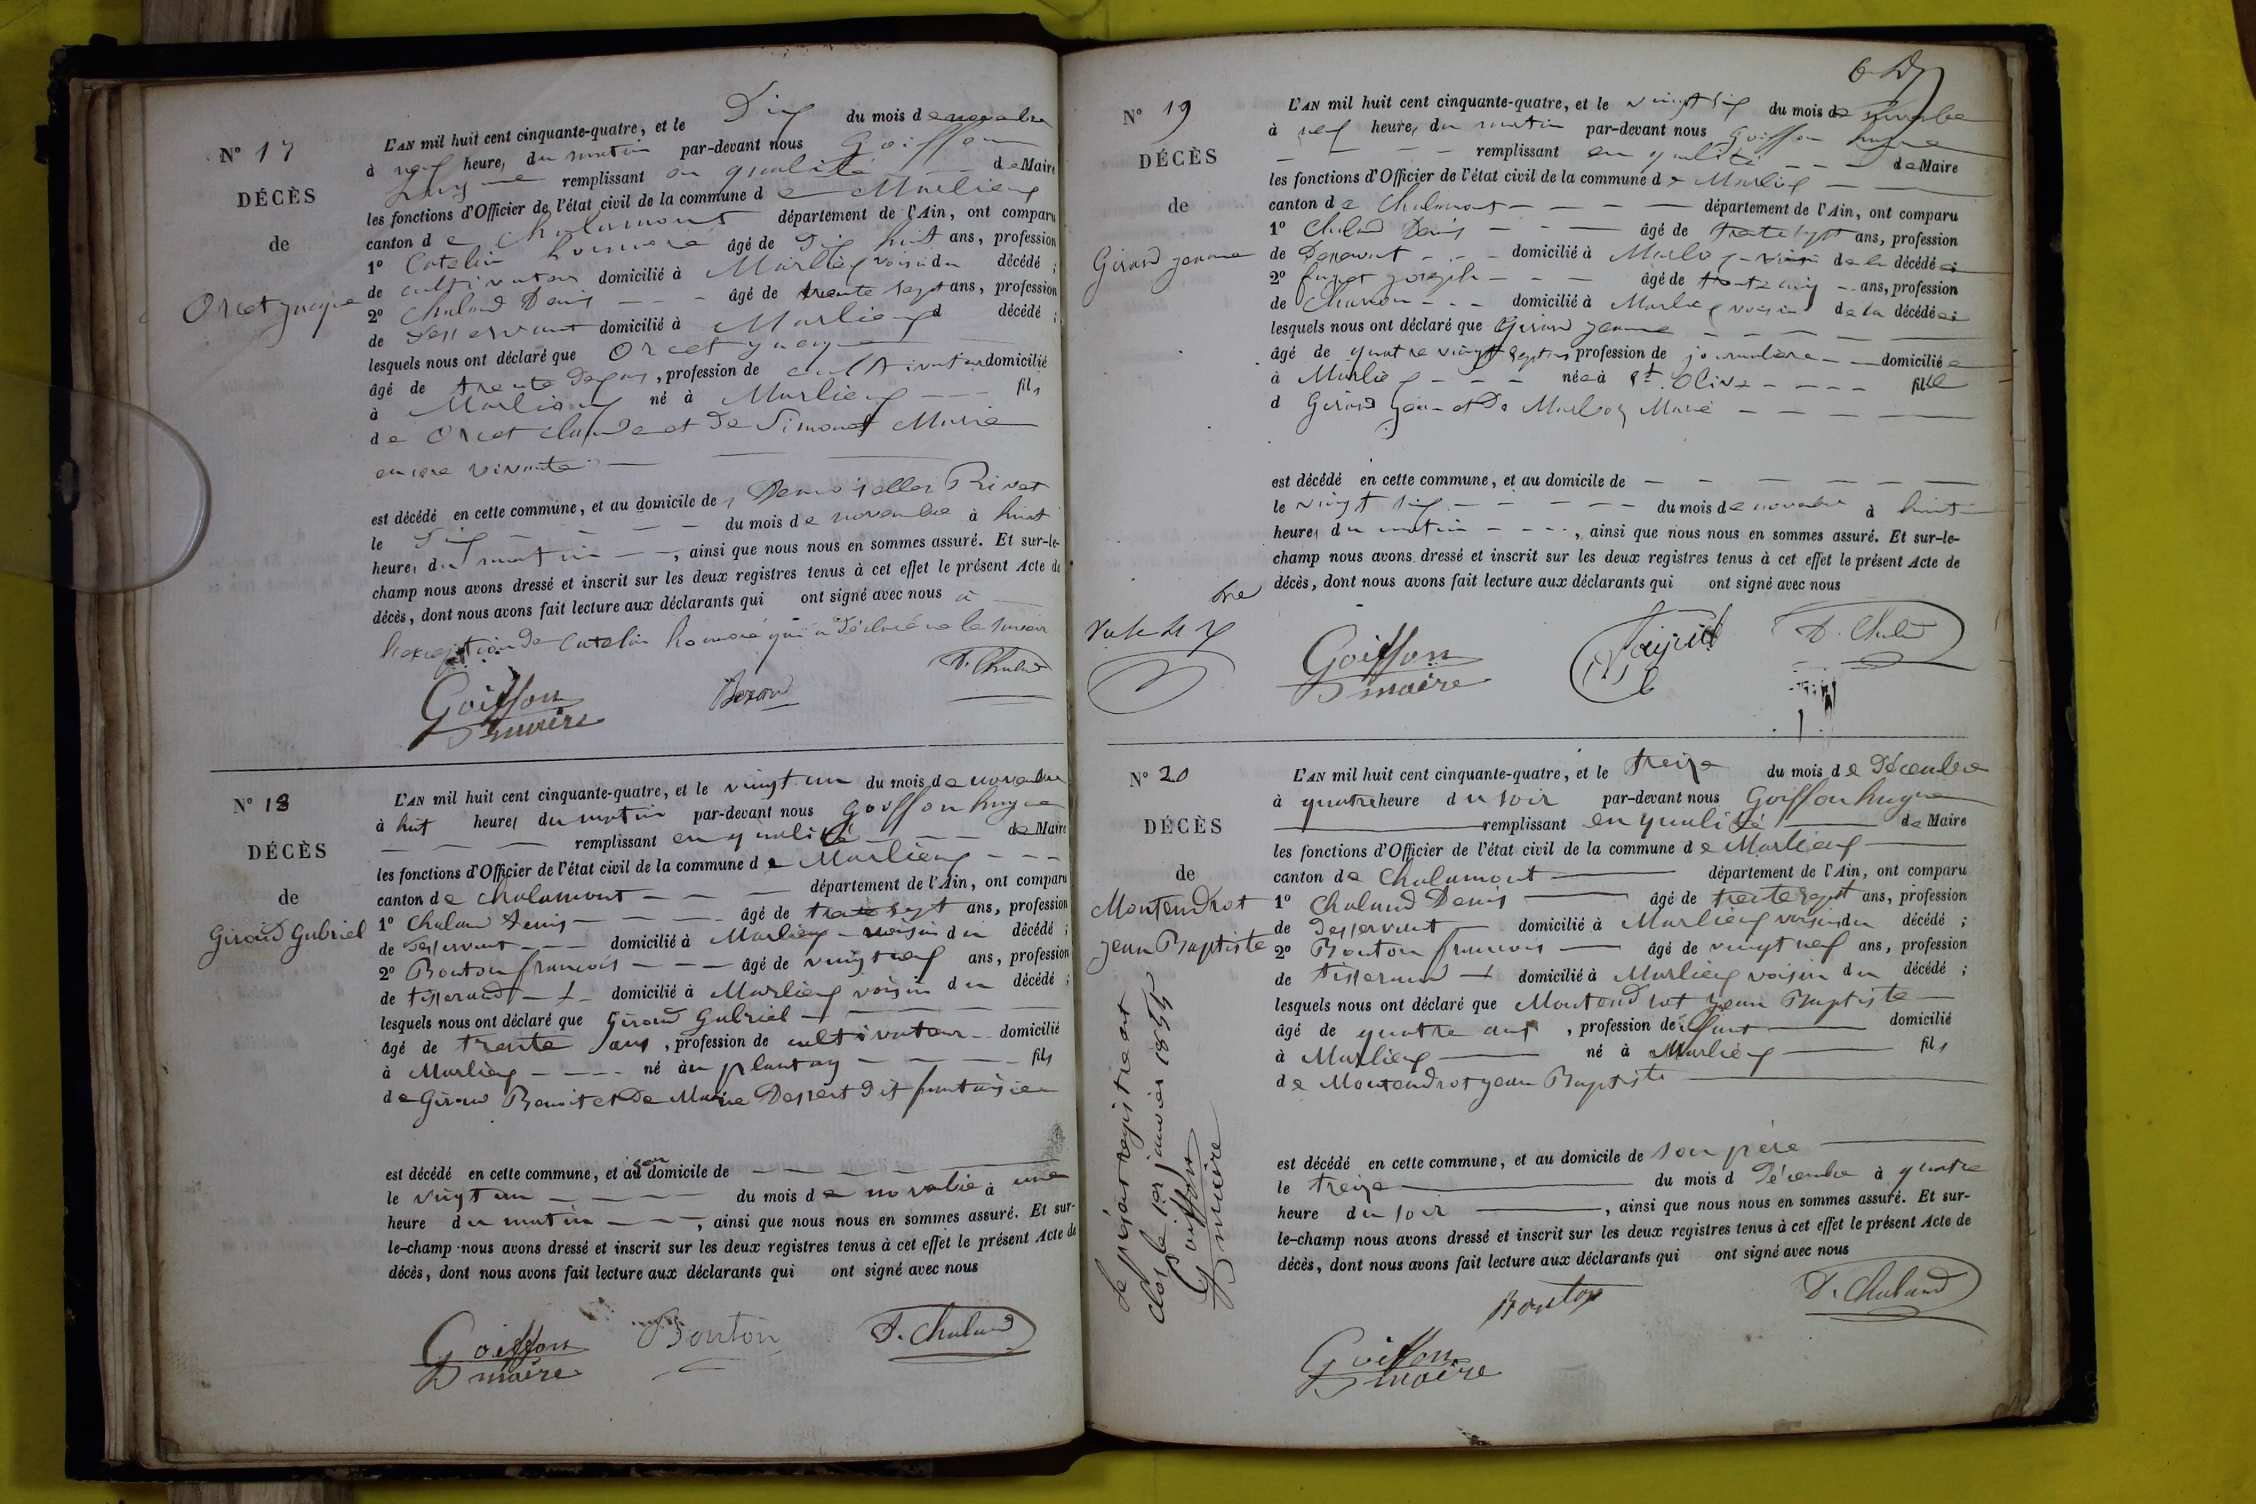 N° 17
DÉCÈS
de
Orcet jacque
L'AN mil huit cent cinquante-quatre, et le Dix du mois de novembre
à neuf heures du matin par-devant nous Goiffon
hugue remplissant en qualité de Maire
les fonctions d'Officier de l'état civil de la commune de Marlieux
canton de Chalamont département de l'Ain, ont comparu
1° Catelin honnoré âgé de Dix huit ans, profession
de cultivateur domicilié à Marlieux voisin du décédé ;
2° Chaland Denis âgé de trente sept ans, profession
de Desservant domicilié à Marlieux d décédé ;
lesquels nous ont déclaré que Orcet jacque
âgé de trente Deux ans, profession de cultivateur domicilié
à Marlieux né à Marlieux fils
de Orcet claude et de Simonet Marie
encore vivante
est décédé en cette commune, et au domicile des Demoiselles Rivet
le Dix du mois de novembre à huit
heures du matin, ainsi que nous nous en sommes assuré. Et sur-le-
champ nous avons dressé et inscrit sur les deux registres tenus à cet effet le présent Acte de
décès, dont nous avons fait lecture aux déclarants qui ont signé avec nous à
l'exception de Catelin honnoré qui a Déclaré ne le savoir
Goiffon
maire
D. Chaland
N° 18
DÉCÈS
de
Giroud Gabriel
L'AN mil huit cent cinquante-quatre, et le vingt un du mois de novembre
à huit heures du matin par-devant nous Goiffon hugue
remplissant en qualité de Maire
les fonctions d'Officier de l'état civil de la commune de Marlieux
canton de chalamont département de l'Ain, ont comparu
1° Chaland Denis âgé de trente sept ans, profession
de Desservant domicilié à Marlieux voisin du décédé ;
2° Bouton francois âgé de vingt neuf ans, profession
de tisserand domicilié à Marlieux voisin du décédé ;
lesquels nous ont déclaré que Giroud Gabriel
âgé de trente ans, profession de cultivateur domicilié
à Marlieux né au plantay fils
de Giroud Benoit et de Marie Dessert dit fantaisien
est décédé en cette commune, et au son domicile de
le vingt un du mois de novembre à une
heure du matin, ainsi que nous nous en sommes assuré. Et sur-
le-champ nous avons dressé et inscrit sur les deux registres tenus à cet effet le présent Acte de
décès, dont nous avons fait lecture aux déclarants qui ont signé avec nous
Goiffon
maire
Bouton
D. Chaland
N° 19
DÉCÈS
de
Girard jeanne
L'AN mil huit cent cinquante-quatre, et le vingt six du mois de novembre
à neuf heures du matin par-devant nous Goiffon hugue
remplissant en qualité de Maire
les fonctions d'Officier de l'état civil de la commune de Marlieux
canton de Chalamont département de l'Ain, ont comparu
1° Chaland Denis âgé de trente sept ans, profession
de Desservant domicilié à Marlieux voisin de la décédée
2° joseph âgé de trente cinq ans, profession
de Charron domicilié à Marlieux voisin de la décédée
lesquels nous ont déclaré que Girard jeanne
âgé de quatre vingt sept ans profession de journalière domiciliée
à Marlieux née à St. Olive fille
d Girard jean et De Marie
est décédé en cette commune, et au domicile de
le vingt six du mois de novembre à huit
heures du matin, ainsi que nous nous en sommes assuré. Et sur-le-
champ nous avons dressé et inscrit sur les deux registres tenus à cet effet le présent Acte de
décès, dont nous avons fait lecture aux déclarants qui ont signé avec nous
Goiffon
maire
D. Chaland
N° 20
DÉCÈS
de
Montendrot
jean Baptiste
L'AN mil huit cent cinquante-quatre, et le treize du mois de Décembre
à quatre heure du soir par-devant nous Goiffon hugue
remplissant en qualité de Maire
les fonctions d'Officier de l'état civil de la commune de Marlieux
canton de Chalamont département de l'Ain, ont comparu
1° Chaland Denis âgé de trente sept ans, profession
de Desservant domicilié à Marlieux voisin du décédé ;
2° Bouton francois âgé de vingt neuf ans, profession
de tisserand domicilié à Marlieux voisin du décédé ;
lesquels nous ont déclaré que Montendrot jean Baptiste
âgé de quatre ans, profession de domicilié
à Marlieux né à Marlieux fils
de Montendrot jean Baptiste
est décédé en cette commune, et au domicile de son père
le treize du mois d Décembre à quatre
heure du soir, ainsi que nous nous en sommes assuré. Et sur-
le-champ nous avons dressé et inscrit sur les deux registres tenus à cet effet le présent Acte de
décès, dont nous avons fait lecture aux déclarants qui ont signé avec nous
Bouton
D. Chaland
Goiffon
maire
Le présent registre est
clos le 1er janvier 1855
Goiffon
maire